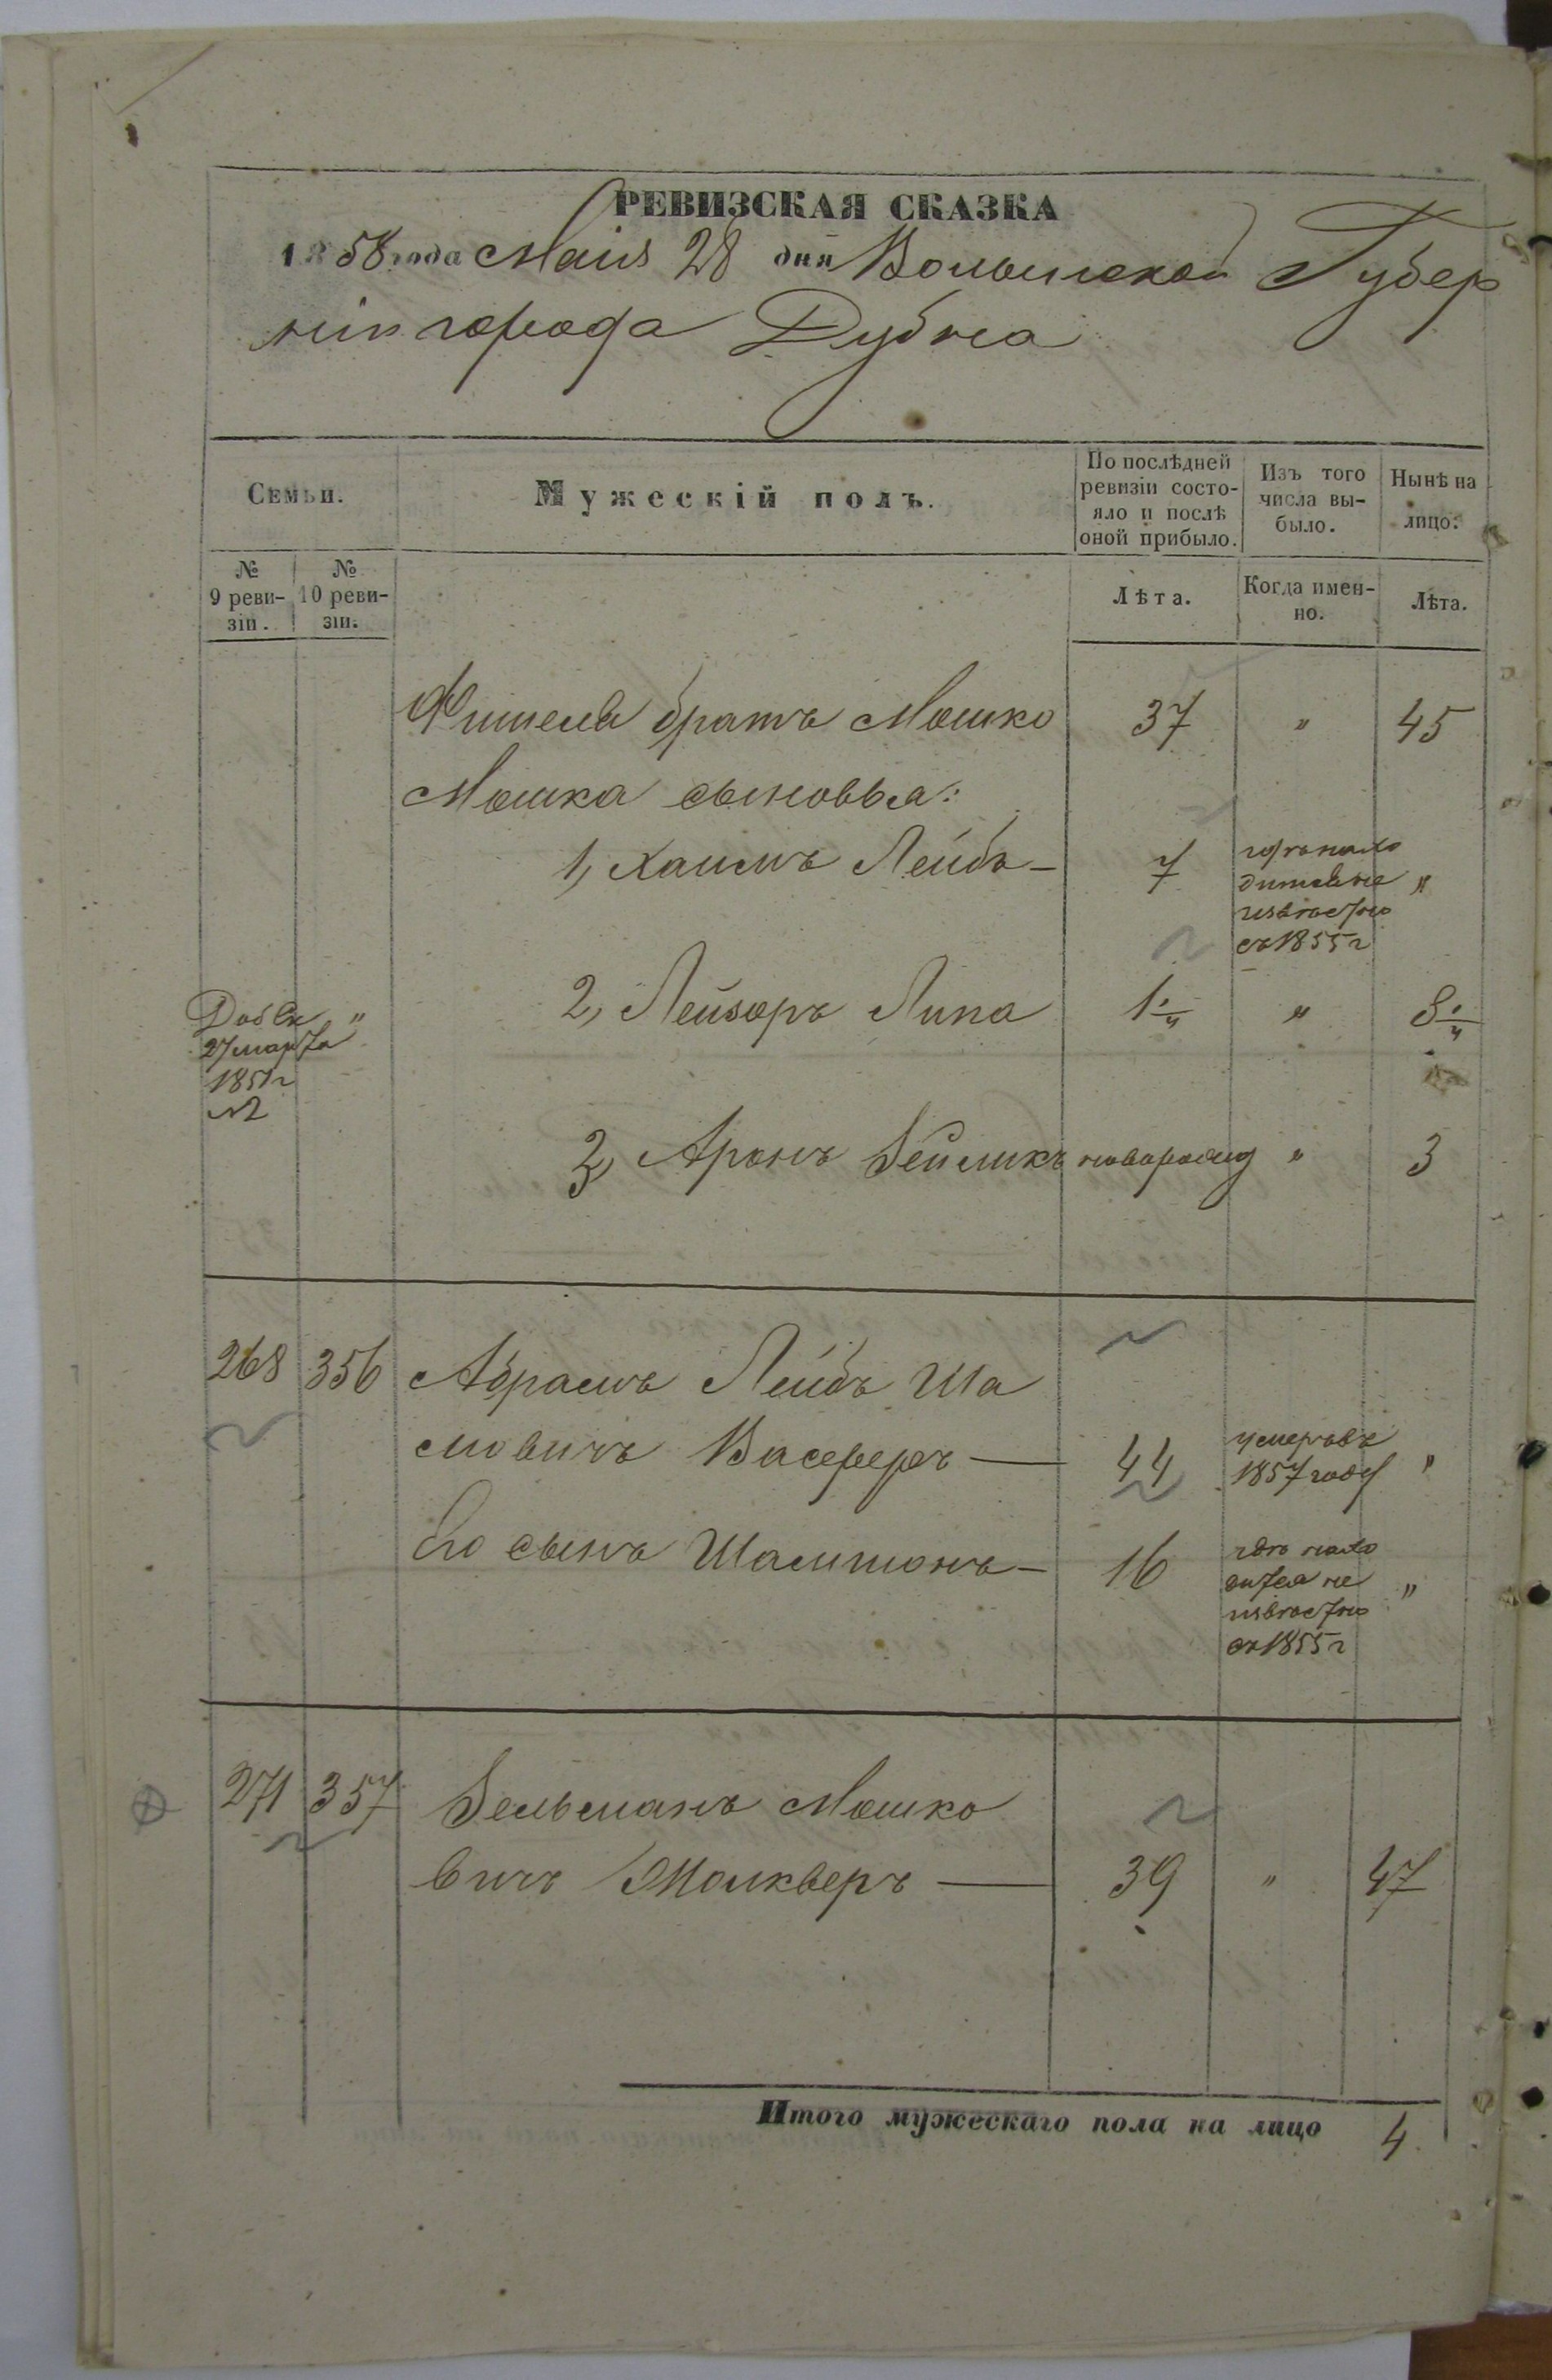 РЕВИЗСКАЯ СКАЗКА
1858 года Маія 28 дня Волынской Губер
ніи города Дубна
Семьи.
Мужескій полъ.
По послѣдней ревизіи состо-
яло и послѣ
оной прибыло.
Изъ того
числа вы-
было.
Нынѣ на
лицо.
№
9 реви-
зіи.
№
10 реви-
зіи.
Лѣта.
Когда имен-
но.
Лѣта.
Фишеля братъ Мошко 37 " 45
Мошка сыновья:
1, Хаимъ Лейбъ — 7 гдѣ нахо
дится не "
извѣстно
съ 1855 г
2, Лейзоръ Липа 1 " 8
27 марта
1851 г
№
3, Аронъ Зейликъ новорожд " 3
268 356 Абрамъ Лейбъ Ша
мовичъ Васереръ — 44 умеръ въ
1857 году "
Его сынъ Шамшонъ — 16 гдѣ нахо
дится не "
извѣстно
съ 1855 г
271 357 Зельманъ Мошко
вичъ Молкверъ — 39 " 47
Итого мужескаго пола на лицо 4